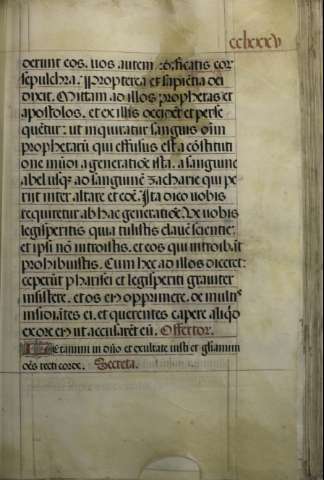 cclxxxv
derunt eos. uos autem edificatis eor
sepulchra. Propterea et sapiētia dei
dixit. Mittam ad illos prophetas et
apostolos. et ex illis occidēt et perse
quētur: ut inquiratur sanguis oīm
prophetarū qui effusus est a cōstituti
one mūdi a generatiōe ista. a sanguine
abel usqz ad sanguinē zacharie qui pe
riit inter altare et edē. Ita dico uobis
requiretur ab hac generatiōe. Ve uobis
legisperitis quia tulistis clauē scientie:
et ipsi nō introistis. et eos qui introibāt
prohibuistis. Cum hec ad illos diceret:
ceperūt pharisei et legisperiti grauiter
insistere. et os eius opprimere. de multis
insidiātes ei. et querentes capere aliqd
ex ore eius ut accusarēt eū. Offertor.
Letamini in dño et exultate iusti et gliamini
oēs recti corde. Secreta.